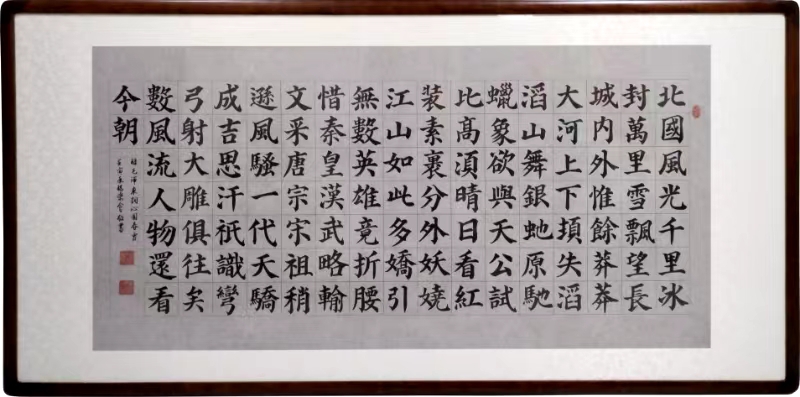 北國風光千里冰
封萬里雪飄望長
城内外惟餘莽莽
大河上下頓失滔
滔山舞銀虵原馳
蠟象欲與天公試
比髙湏晴日看紅
装素裹分外妖嬈
江山如此多嬌引
無數英雄竟折腰
惜秦皇漢武略輸
文采唐宗宋祖稍
遜風騷一代天驕
成吉思汗衹識彎
弓射大雕俱往矣
數風流人物還看
今朝
錄毛澤東詞沁園春雪
壬寅 書